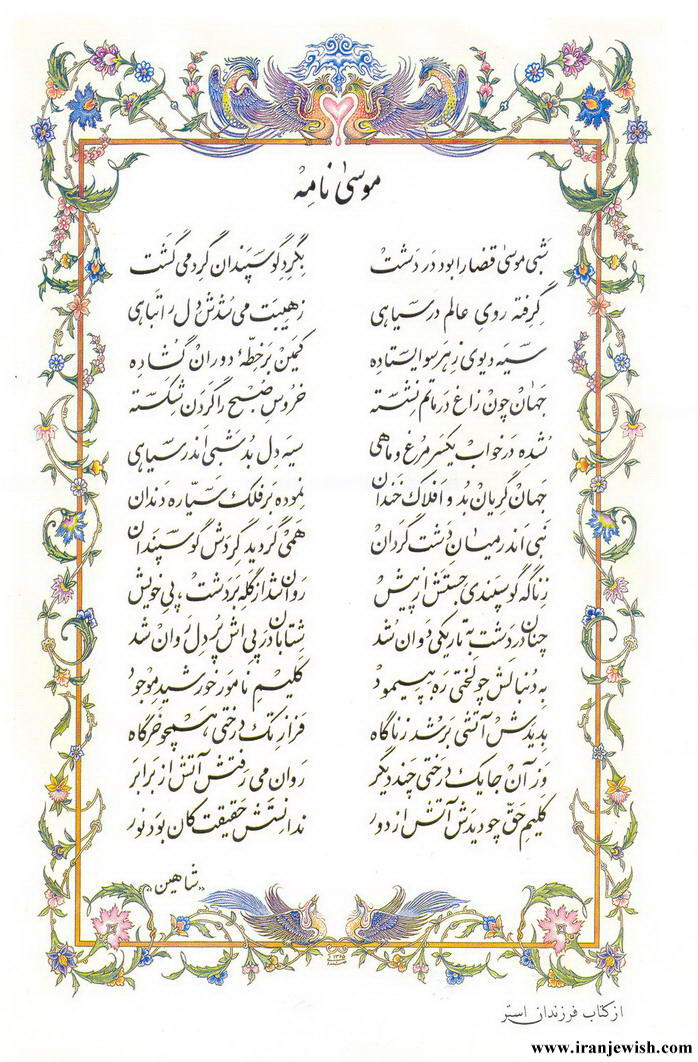 موسیٰ نامه
شبی موسیٰ قضا را بود در دشت بگردِ گوسپندان گرد می گشت
گرفته رویِ عالم در سیاهی ز هیبت می شدش دل را تباهی
سیه دیوی ز هر سو ایستاده کمین بر خطهٔ دوران گشاده
جهان چون زاغ در ماتم نشسته خروسِ صبح را گردن شکسته
شده در خواب یکسر مرغ و ماهی سیه دل بُد شبی اندر سیاهی
جهان گریان بُد و افلاک خندان نموده بر فلک سیّاره دندان
نبی اندر میانِ دشت گردان همی گردید گردش گوسپندان
ز ناگه گوسپندی جستش از پیش روان شد از گله بر دشت، پی خویش
چنان در دشت به تاریکی دوان شد شتابان در پی اش پر دل روان شد
به دنبالش چو لختی ره پیمود کلیمِ نامور خورشید موجود
بدیدش آتشی بر شد ز ناگاه فراز تک درختی همچو خرگاه
وز آن جا یک درختی چند دیگر روان می رفتش آتش از برابر
کلیمِ حقّ چو دیدش آتش از دور ندانستش حقیقت کان بود نور
«شاهین»
۱۳۶۵
از کتاب فرزندان استر
www.iranjewish.com